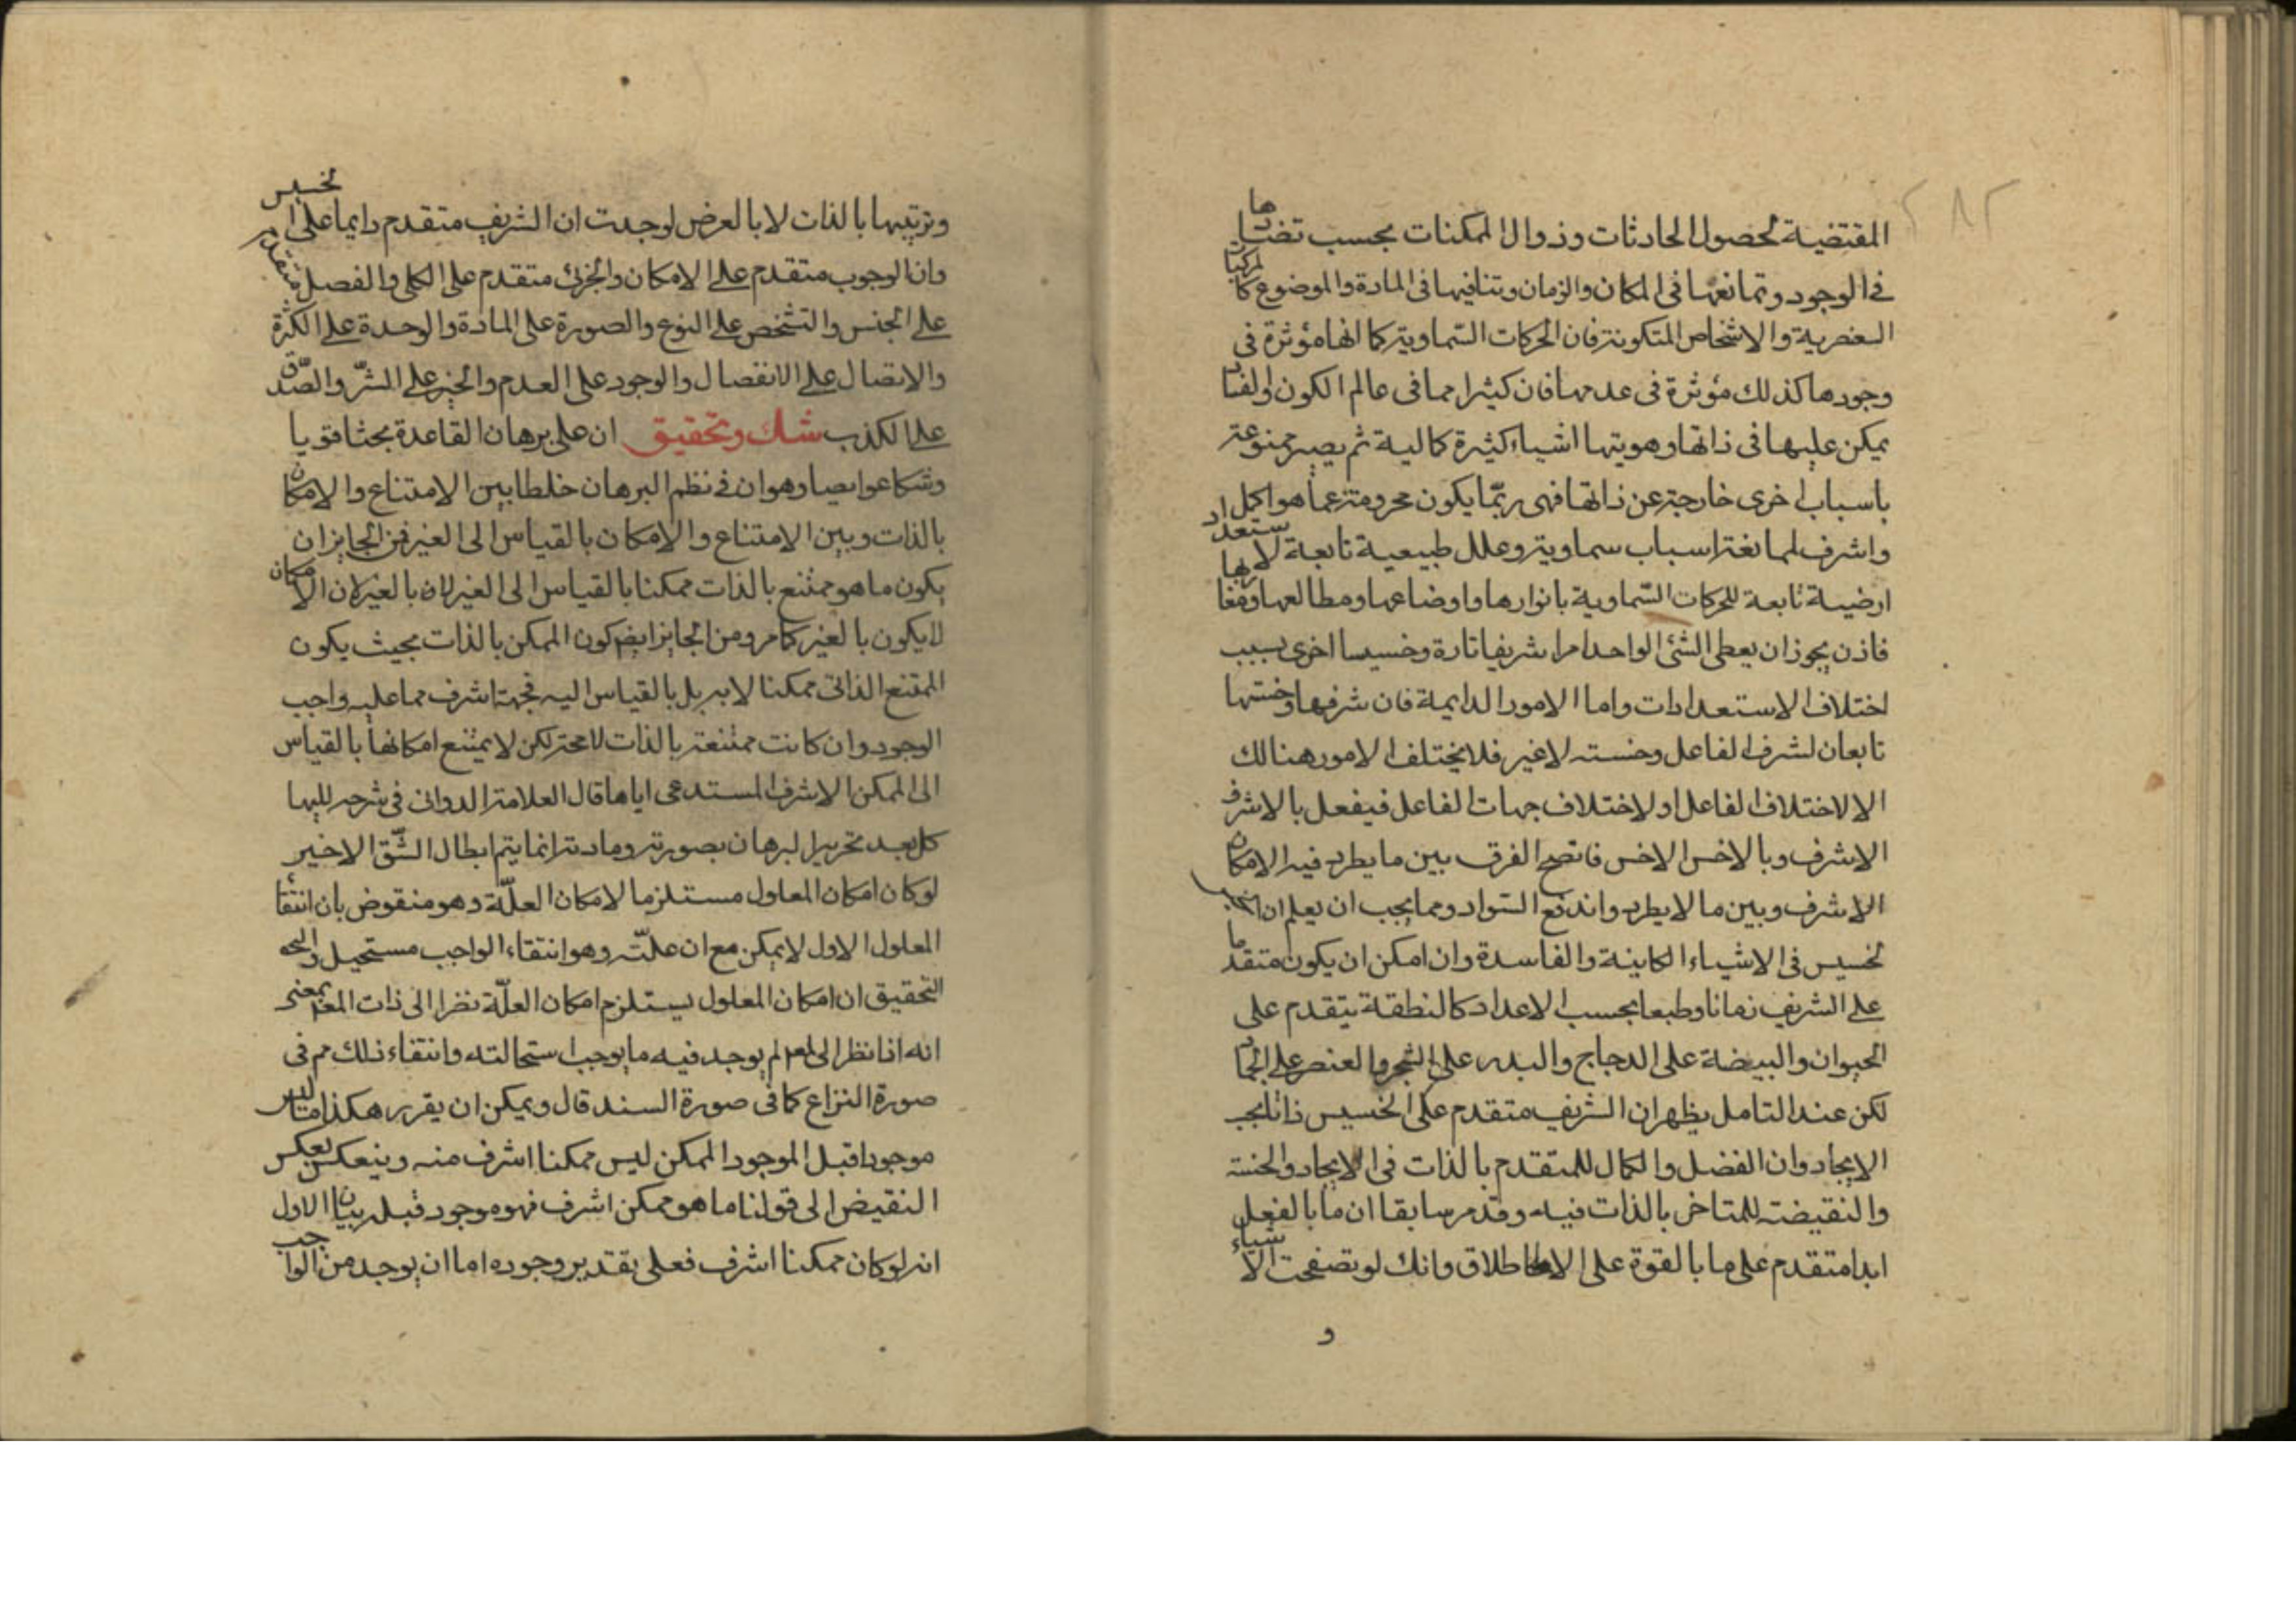 ٢٨٢
المقتضية لحصول الحادثات وزوال الممكنات بحسب تضادها
في الوجود وتمانعها في المكان والزمان وتنافيها في المادة والموضوع كالمركبات
العنصرية والاشخاص المتكونة فان الحركات السّماوية كما انها مؤثرة في
وجودها كذلك مؤثرة في عدمها فان كثيرا مما في عالم الكون والفساد
يمكن عليها في ذاتها وهويتها اشياء كثيرة كمالية ثم يصير ممنوعة
باسباب اخرى خارجة عن ذاتها فهي ربّما يكون محرومة عما هو اكمل
واشرف لممانعة اسباب سماوية وعلل طبيعية تابعة لاستعداد
ارضية تابعة للحركات السّماوية بانوارها واوضاعها ومطالعها ومغاربها
فاذن يجوز ان يعطى الشئ الواحد امرا شريفا تارة وخسيسا اخرى بسبب
اختلاف الاستعدادات واما الامور الدايمة فان شرفها وخستها
تابعان لشرف الفاعل وخسته لا غير فلا يختلف الامور هنالك
الا لاختلاف الفاعل او لاختلاف جهات الفاعل فيفعل بالاشرف
الاشرف وبالاخس الاخس فاتضح الفرق بين ما يطرد فيه الامكان
الاشرف وبين ما لا يطرد واندفع السّؤال ومما يجب ان يعلم ان
الخسيس في الاشياء الكاينة والفاسدة وان امكن ان يكون متقدما
على الشريف زمانا وطبعا بحسب الاعداد كالنطفة يتقدم على
الحيوان والبيضة على الدجاج والبذر على الشجر والعنصر على الجماد
لكن عند التامل يظهر ان الشريف متقدم على الخسيس ذاتا بحسب
الايجاد وان الفضل والكمال للمتقدم بالذات في الايجاد والخسة
والنقيضة للمتاخر بالذات فيه وقد مر سابقا ان ما بالفعل
ابدا متقدم على ما بالقوة على الاطلاق وانك لو تصفحت الاشياء
و
وترتيبها بالذات لا بالعرض لوجدت ان الشريف متقدم دايما على الخسيس
وان الوجوب متقدم على الامكان والجزئ متقدم على الكلى والفصل متقدم
على الجنس والتشخص على النوع والصورة على المادة والوحدة على الكثرة
والاتصال على الانفصال والوجود على العدم والخير على الشرّ والصّدق
على الكذب شك وتحقيق ان على برهان القاعدة بحثا قويا
وشكا عويصا وهو ان في نظم البرهان خلطا بين الامتناع والامكان
بالذات وبين الامتناع والامكان بالقياس الى الغير فمن الجايز ان
يكون ما هو ممتنع بالذات ممكنا بالقياس الى الغير لا بالغير لان الامكان
لا يكون بالغير كما مر ومن الجايز ايضا كون الممكن بالذات بحيث يكون
الممتنع الذاتى ممكنا لا به بل بالقياس اليه فجهة اشرف مما عليه واجب
الوجود وان كانت ممتنعة بالذات لا محة لكن لا يمتنع امكانها بالقياس
الى الممكن الاشرف المستدعى اياها قال العلامة الدوانى في شرحه للهيا
كل بعد تحرير البرهان بصورته ومادته انما يتم ابطال الشّق الاخير
لو كان امكان المعلول مستلزما لامكان العلّة وهو منقوض بان انتفاء
المعلول الاول لا يمكن مع ان علّته وهو انتفاء الواجب مستحيل
التحقيق ان امكان المعلول يستلزم امكان العلّة نظرا الى ذات المعم بمعنى
انه اذا نظر الى المعم لم يوجد فيه ما يوجب استحالته وانتفاء ذلك مم في
صورة النزاع كما في صورة السند قال ويمكن ان يقرر هكذا ما ليس
موجودا قبل الموجود الممكن ليس ممكنا اشرف منه وينعكس بعكس
النقيض الى قولنا ما هو ممكن اشرف فهو موجود قبله بيان الاول
انه لو كان ممكنا اشرف فعلى تقدير وجوده اما ان يوجد من الواجب